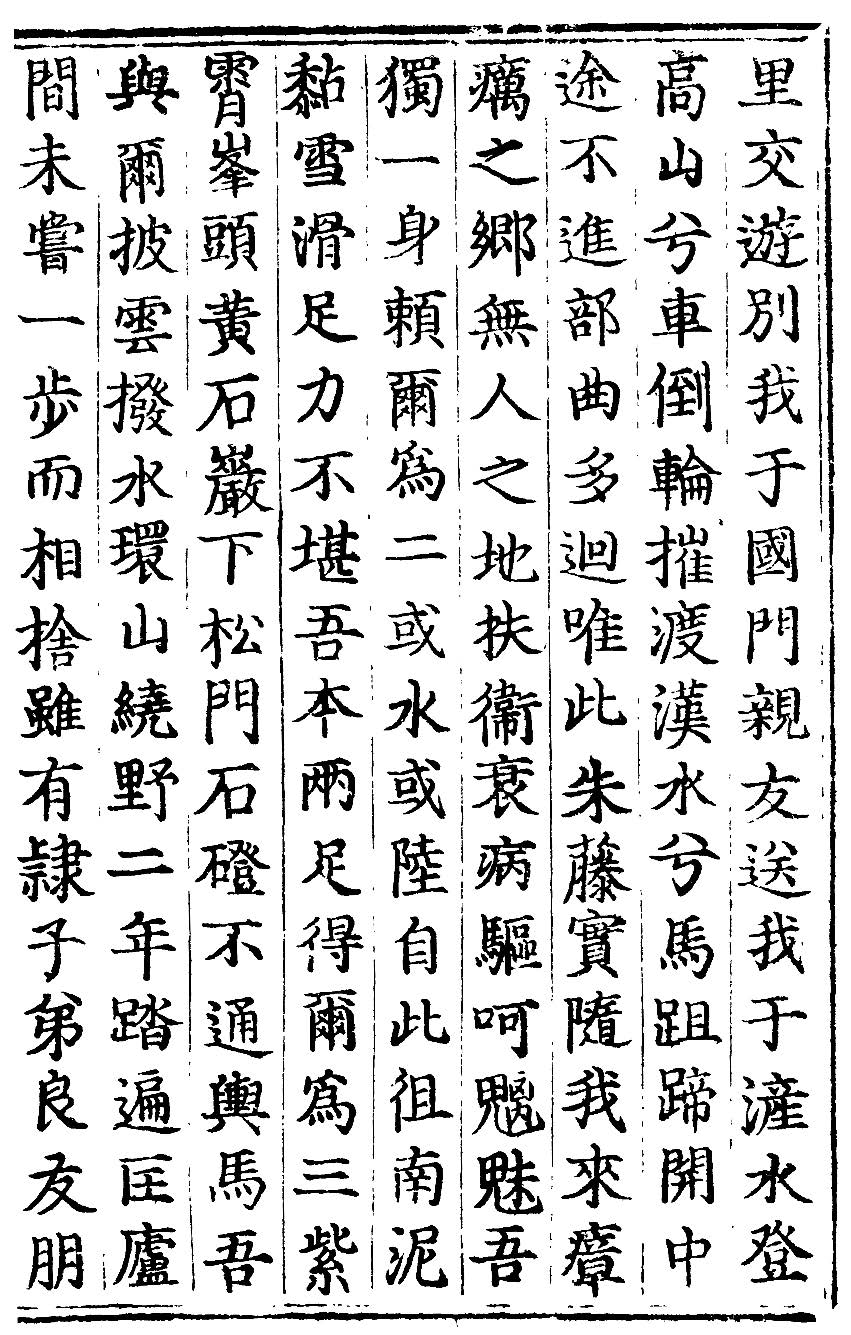 里交遊別我于國門親友送我于滻水登
高山兮車倒輪摧渡漢水兮馬跙蹄開中
途不進部曲多迴唯此朱藤實隨我來瘴
癘之鄉無人之地扶衞衰病驅呵魑魅吾
獨一身賴爾爲二或水或陸自此徂南泥
黏雪滑足力不堪吾本兩足得爾爲三紫
霄峯頭黃石巖下松門石磴不通輿馬吾
與爾披雲撥水環山繞野二年踏遍匡廬
間未嘗一步而相捨雖有隷子弟良友朋